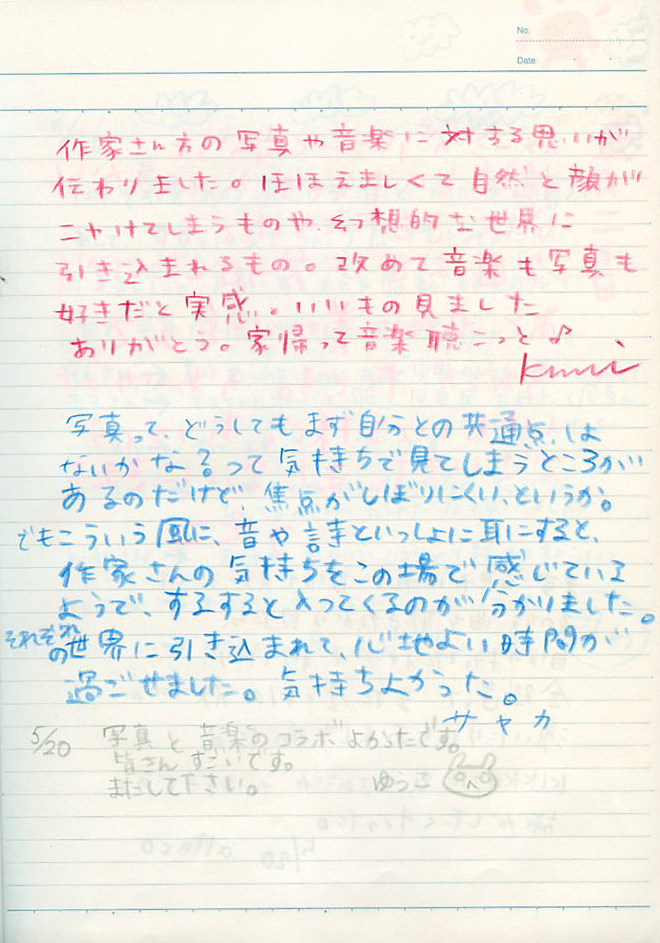 No.
Date
作家さん方の写真や音楽に対する思いが
伝わりました。ほほえましくて自然と顔が
ニヤけてしまうものや、幻想的な世界に
引き込まれるもの。改めて音楽も写真も
好きだと実感。いいもの見ました
ありがとう。家帰って音楽聴こっと♪
写真って、どうしてもまず自分との共通点は
ないかなぁって気持ちで見てしまうところが
あるのだけど、焦点がしぼりにくい、というか。
でもこういう風に、音や言葉といっしょに耳にすると、
作家さんの気持ちをこの場で感じている
ようで、するすると入ってくるのが分かりました。
それぞれ
の世界に引き込まれて、心地よい時間が
過ごせました。気持ちよかった。
サヤカ
5/20 写真と音楽のコラボよかったです。
皆さんすごいです。
またして下さい。 ゆうこ
5/20